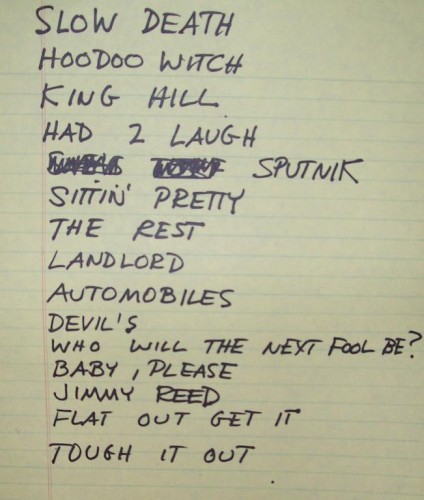 SLOW DEATH
HOODOO WITCH
KING HILL
HAD 2 LAUGH
SPUTNIK
SITTIN' PRETTY
THE REST
LANDLORD
AUTOMOBILES
DEVIL'S
WHO WILL THE NEXT FOOL BE?
BABY, PLEASE
JIMMY REED
FLAT OUT GET IT
TOUGH IT OUT